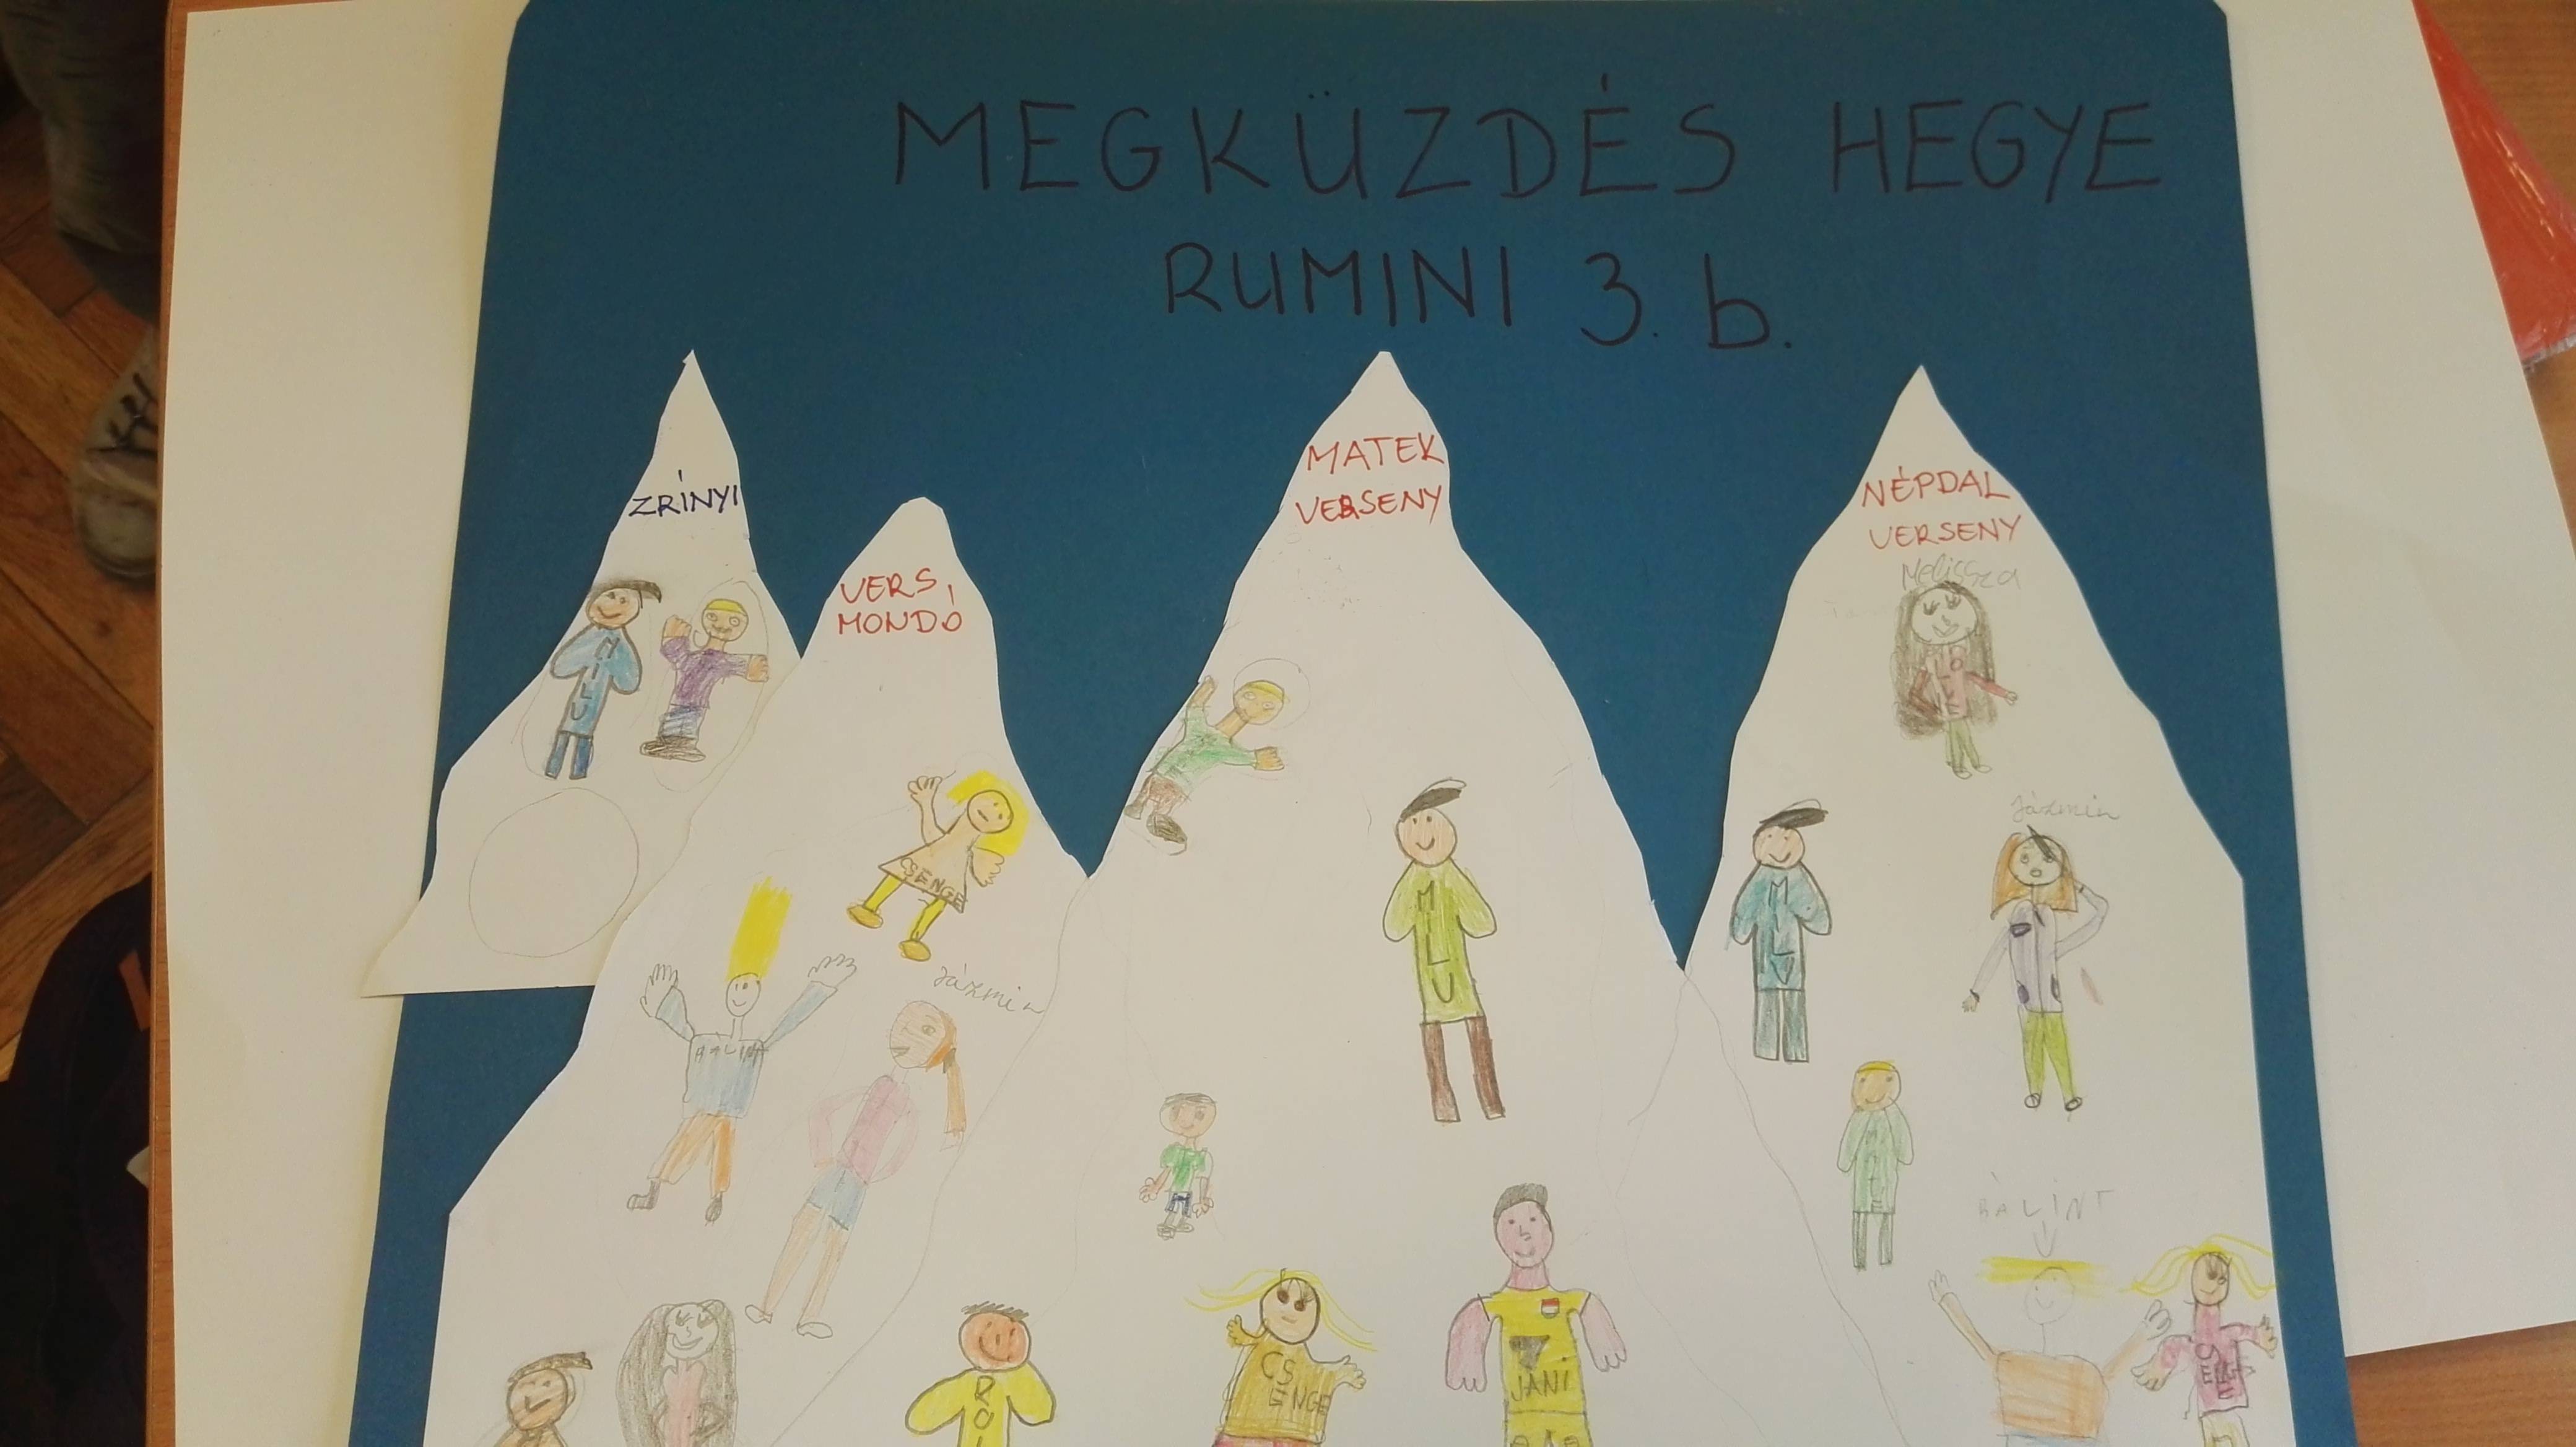 MEGKÜZDÉS HEGYE
RUMINI 3. b.
ZRÍNYI
VERS
MONDÓ
MATEK
VERSENY
NÉPDAL
VERSENY
Melissza
MILU
CSENGE
Jázmin
BÁLINT
MILU
MILU
Jázmin
BÁLINT
CS
ENGE
JANI